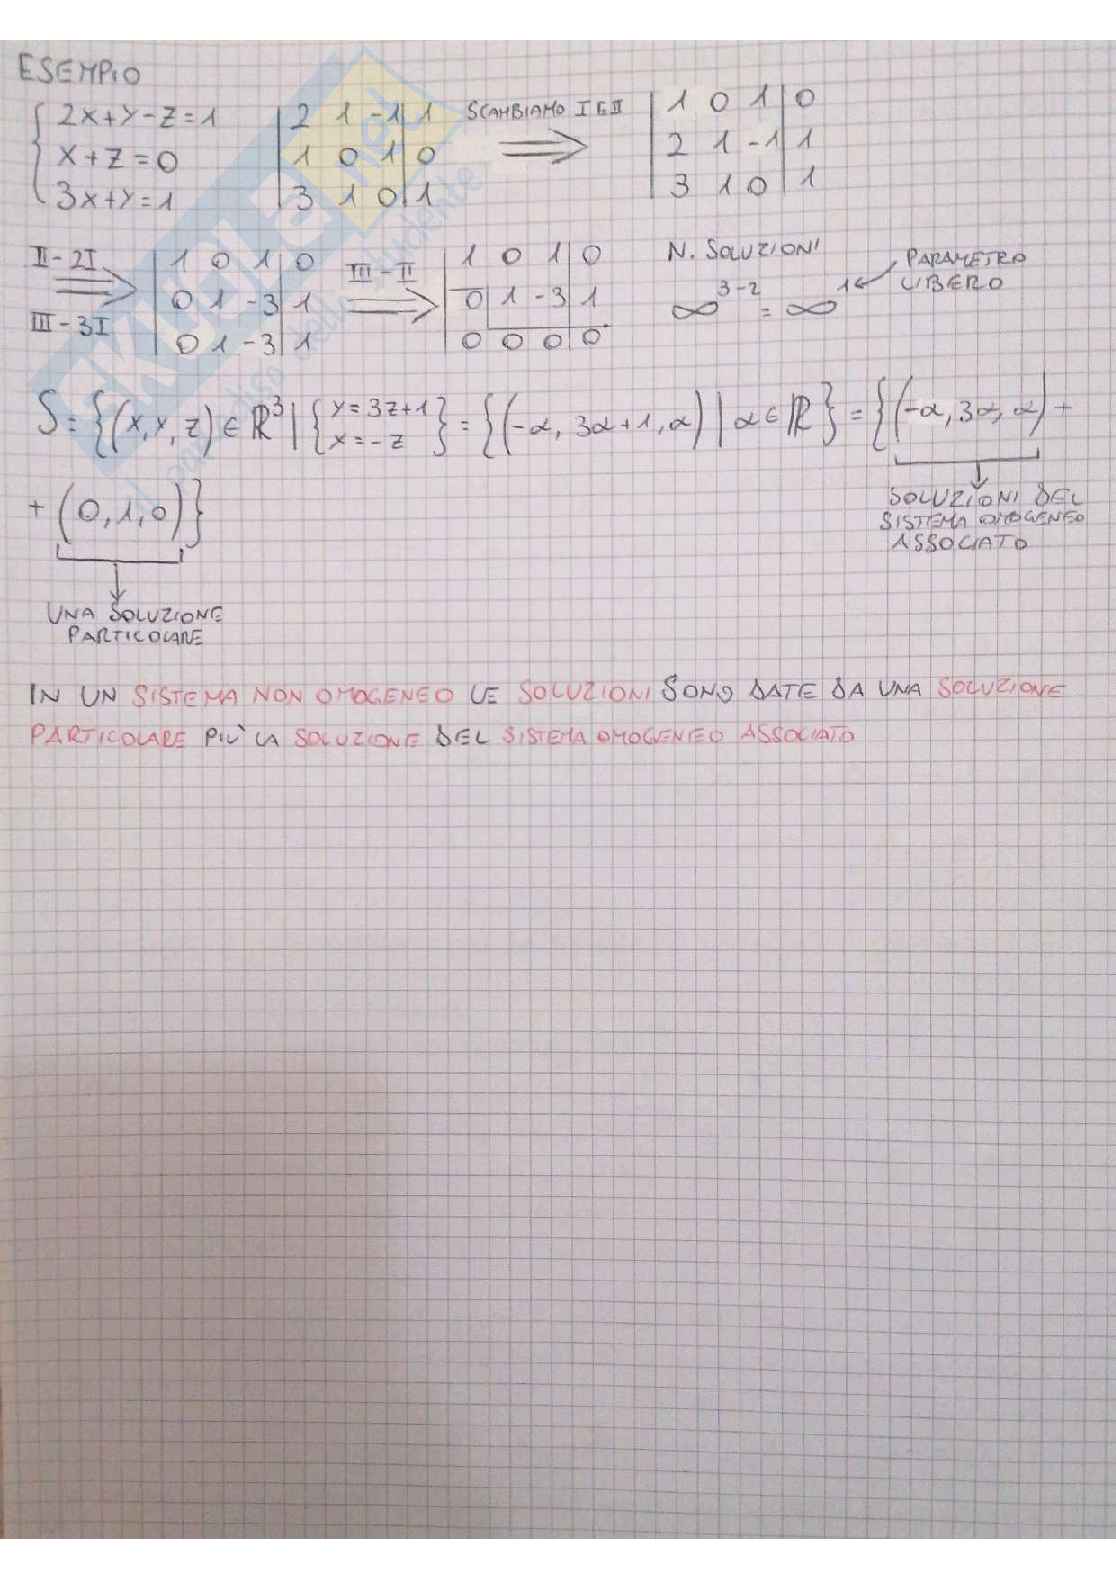 ESEMPIO
{ 2x+y-z=1
x+z=0
3x+y=1
| 2 1 -1 | 1
| 1 0 1 | 0
| 3 1 0 | 1
SCAMBIAMO I E II
⇒
| 1 0 1 | 0
| 2 1 -1 | 1
| 3 1 0 | 1
II-2I
⇒
III-3I
| 1 0 1 | 0
| 0 1 -3 | 1
| 0 1 -3 | 1
III-II
⇒
| 1 0 1 | 0
| 0 1 -3 | 1
| 0 0 0 | 0
N. SOLUZIONI
∞^3-2 = ∞^1 ← PARAMETRO
LIBERO
S = {(x,y,z) ∈ ℝ^3 | { y=3z+1 x=-z } = {(-α, 3α+1, α) | α ∈ ℝ} = {(-α, 3α, α) +
+ (0,1,0)}
SOLUZIONI DEL
SISTEMA OMOGENEO
ASSOCIATO
UNA SOLUZIONE
PARTICOLARE
IN UN SISTEMA NON OMOGENEO LE SOLUZIONI SONO DATE DA UNA SOLUZIONE
PARTICOLARE PIÙ LA SOLUZIONE DEL SISTEMA OMOGENEO ASSOCIATO